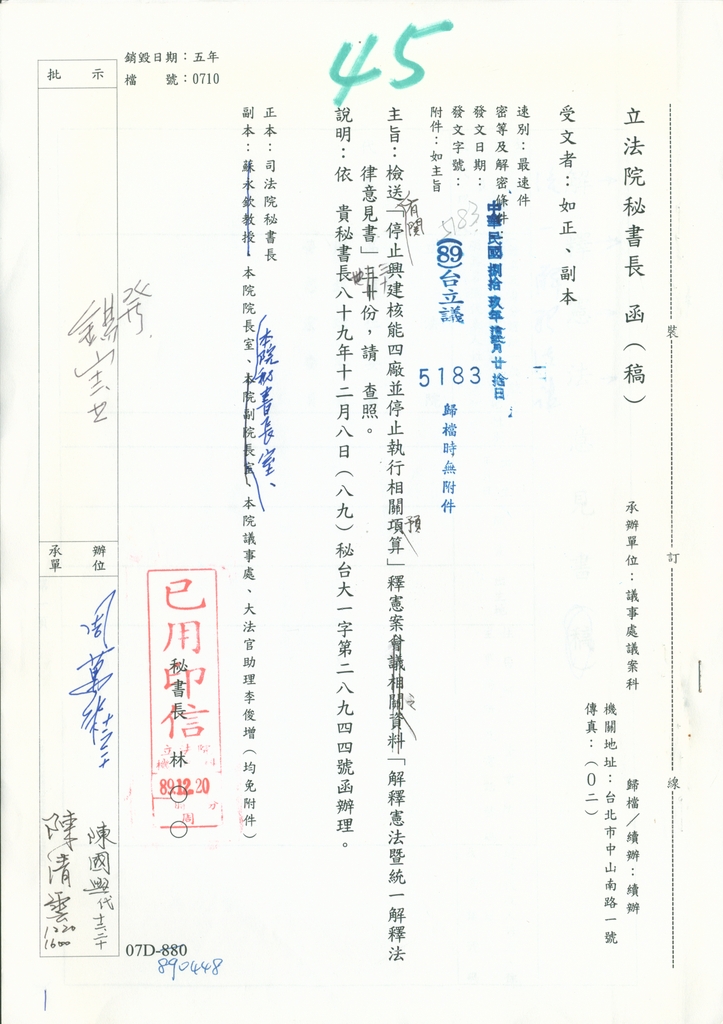 45
檔　　號：0710
銷毀日期：五年
立法院秘書長　函（稿）
承辦單位：議事處議案科
歸檔／續辦：續辦
機關地址：台北市中山南路一號
傳真：（０二）
受文者：如正、副本
速別：最速件
密等及解密條件：
發文日期：中華民國捌拾玖年拾貳月廿拾日
發文字號：(89)台立議 5183
5183
附件：如主旨
歸檔時無附件
主旨：檢送「停止興建核能四廠並停止執行相關項算」釋憲案會議相關資料「解釋憲法暨統一解釋法
律意見書」三十份，請　查照。
有關
預
說明：依　貴秘書長八十九年十二月八日（八九）秘台大一字第二八九四四號函辦理。
正本：司法院秘書長
副本：蘇永欽教授、本院院長室、本院副院長室、本院議事處、大法官助理李俊增（均免附件）
本院秘書長室、
已用印信
89.12.20
周
秘書長　林○○
批示
承辦單位
周萬來
陳國興代
陳清雲
1220
1600
07D-880
890448
裝
訂
線
1